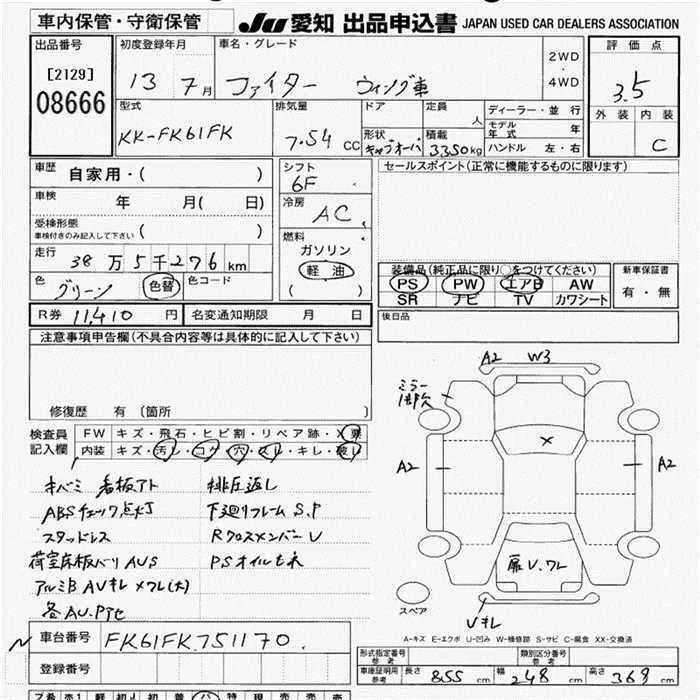 車内保管・守衛保管
JU 愛知 出品申込書 JAPAN USED CAR DEALERS ASSOCIATION
出品番号
[2129]
08666
初度登録年月
13 7月
車名・グレード
ファイター ウィング車
2WD
・
4WD
評価点
3.5
外装 内装
C
型式
KK-FK61FK
排気量
7.54 CC
ドア
形状
キャブオーバ
定員
人
積載
3350kg
ディーラー・並行
モデル年式 年
ハンドル 左・右
車歴 自家用・( )
車検 年 月( 日)
受検形態
車検付きのみ記入して下さい ( )
走行
38万5千276km
色
グリーン 色替
色コード
シフト
6F
冷房
AC
燃料
ガソリン
軽油
( )
セールスポイント(正常に機能するものに限ります)
装備品(純正品に限り○をつけてください)
PS PW エアB AW
SR ナビ TV カワシート
新車保証書
有・無
R券 11,410 円
名変通知期限 月 日
後日品
注意事項申告欄(不具合内容等は具体的に記入して下さい)
修復歴 有 〔箇所 〕
検査員
記入欄
FW キズ・飛石・ヒビ割・リペア跡・X票
内装 キズ・汚レ・コゲ・穴・スレ・キレ・破レ
キバミ 看板アト
ABSチェック点灯
スタッドレス
荷室床板バリ AUS
アルミB AVキレ メクレ(大)
各AU.P
排圧返し
下廻リフレーム S.P
RクロスメンバーU
PSオイルモレ
A2 W3
ミラー
A2
A2
扉U.ワレ
スペア
Vキレ
A-キズ E-エクボ U-凹み W-補修跡 S-サビ C-腐食 XX-交換済
車台番号 FK61FK.751170
登録番号
形式指定番号
参考
類別区分番号
参考
車庫証明用
参考
長さ 855 cm 幅 248 cm 高さ 369 cm